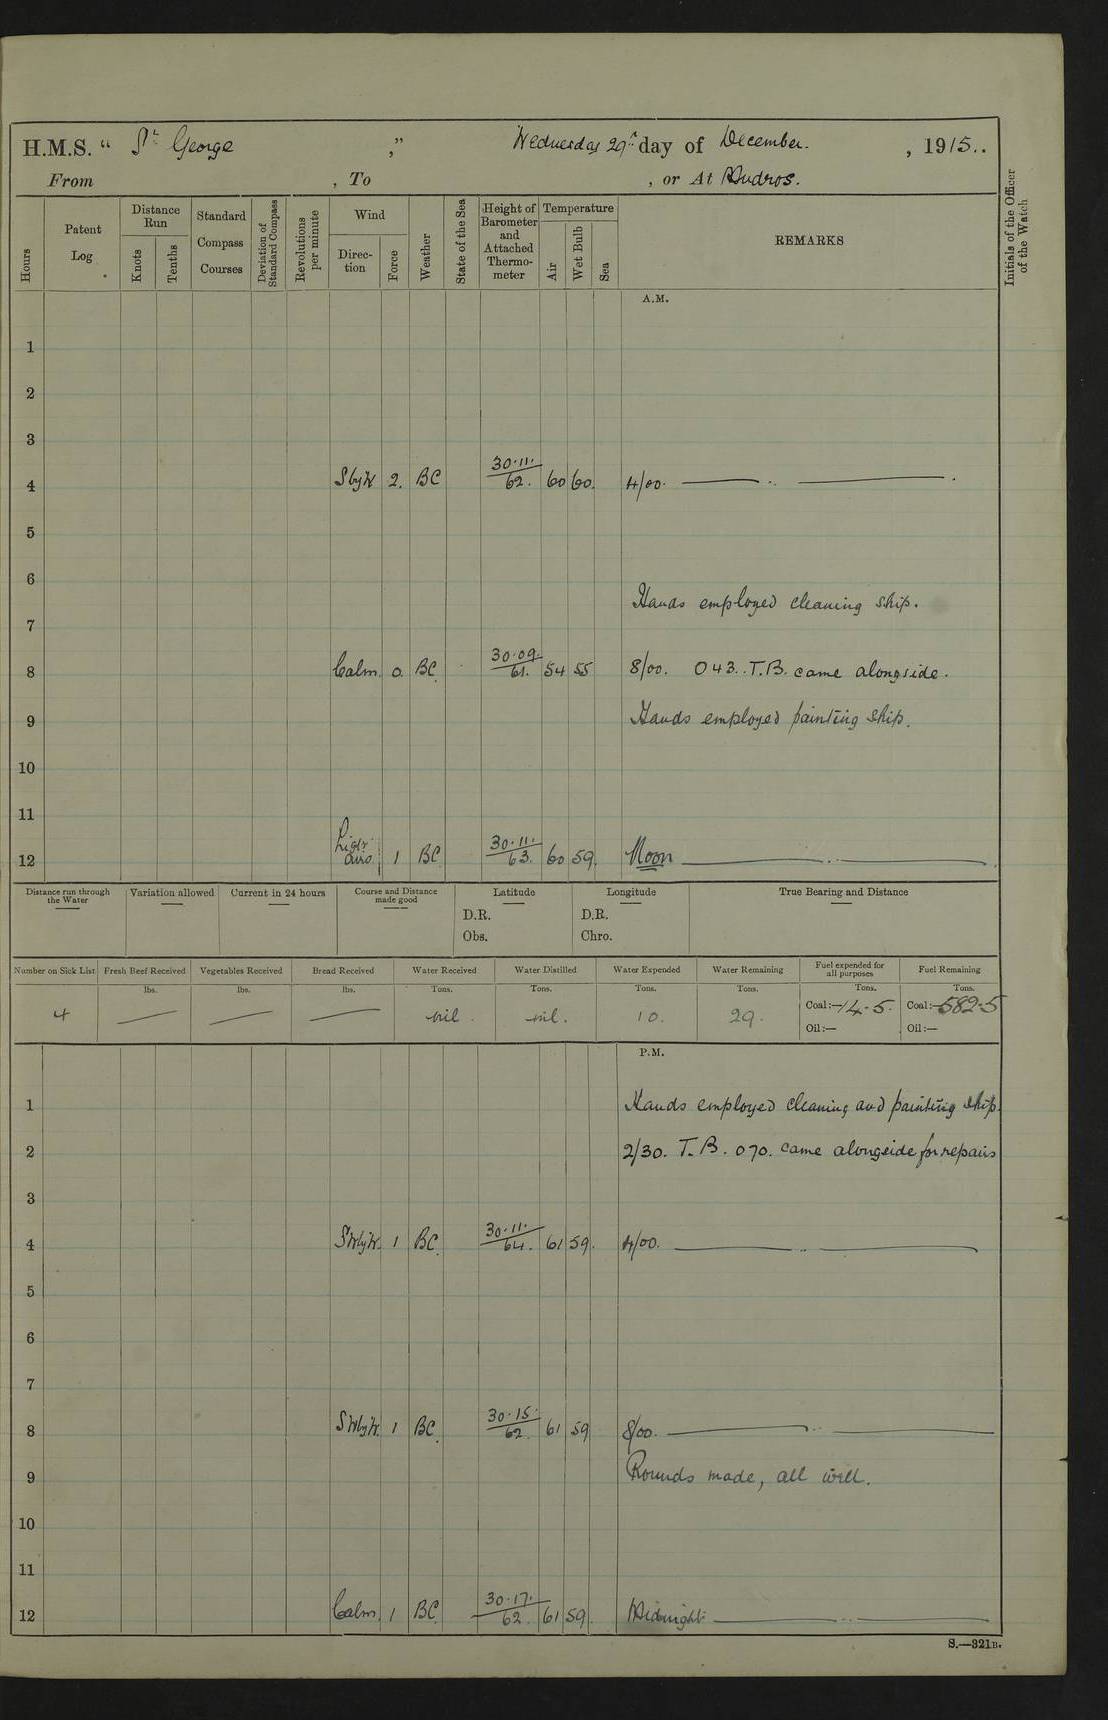 H.M.S. “ St George ,” Wednesday 29th day of December. , 1915..
From , To , or At Mudros.
Hours
Patent Log
Distance Run
Knots
Tenths
Standard Compass Courses
Deviation of Standard Compass
Revolutions per minute
Wind
Direc-tion
Force
Weather
State of the Sea
Height of Barometer and Attached Thermo-meter
Temperature
Air
Wet Bulb
Sea
REMARKS
Initials of the Officer of the Watch
A.M.
1
2
3
4 SbyW 2. BC 30.11. 62. 60 60. 4/00.
5
6
Hands employed cleaning ship.
7
8 Calm. 0. BC. 30.09. 61. 54 55 8/00. 043. T.B. came alongside.
9 Hands employed painting ship.
10
11
12 Light airs 1 BC. 30.11. 63. 60 59. Noon
Distance run through the Water
Variation allowed
Current in 24 hours
Course and Distance made good
Latitude
D.R.
Obs.
Longitude
D.R.
Chro.
True Bearing and Distance
Number on Sick List
Fresh Beef Received
Vegetables Received
Bread Received
Water Received
Water Distilled
Water Expended
Water Remaining
Fuel expended for all purposes
Fuel Remaining
lbs. lbs. lbs. Tons. Tons. Tons. Tons. Tons. Tons.
4 — — — nil. nil. 10. 29. Coal:—14.5. Coal:—582.5
Oil:— Oil:—
P.M.
1 Hands employed cleaning and painting ship.
2 2/30. T.B. 070. came alongside for repairs
3
4 SWbyW. 1 BC. 30.11. 64. 61 59. 4/00.
5
6
7
8 SWbyW. 1 BC. 30.15. 62. 61 59 8/00.
9 Rounds made, all well.
10
11
12 Calm. 1 BC. 30.17. 62. 61 59. Midnight
S.—321B.